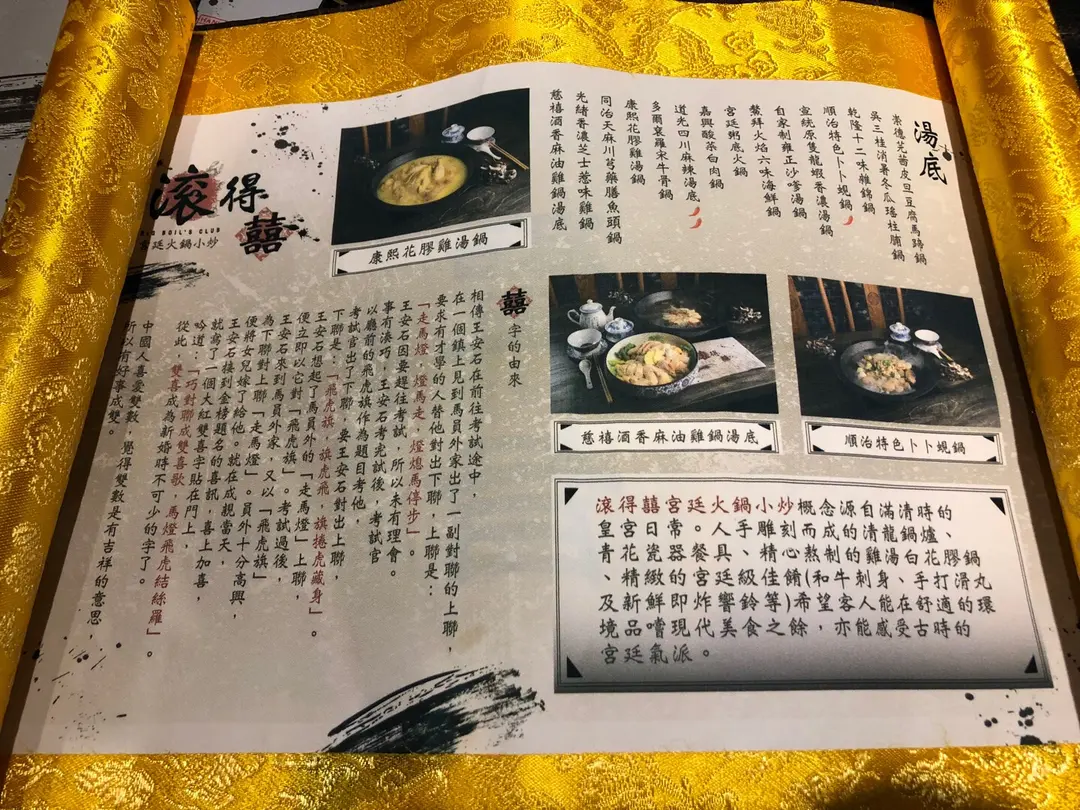 湯底
崇德芝茵皮旦豆腐馬蹄鍋
吳三桂消暑冬瓜瑤柱脯鍋
乾隆十二味雜錦鍋
順治特色卜卜蜆鍋
宣統原隻龍蝦香濃湯鍋
自家制雍正沙嗲湯鍋
鰲拜火焰六味海鮮鍋
宮廷粥底火鍋
嘉興酸菜白肉鍋
道光四川麻辣湯底
多爾袞羅宋牛骨鍋
康熙花膠雞湯鍋
同治天麻川芎藥膳魚頭鍋
光緒香濃芝士惹味雞鍋
慈禧酒香麻油雞鍋湯底
康熙花膠雞湯鍋
滾得囍
BOIL'S CLUB
宮廷火鍋小炒
慈禧酒香麻油雞鍋湯底
順治特色卜卜蜆鍋
滾得囍宮廷火鍋小炒概念源自滿清時的
皇宮日常。人手雕刻而成的清龍鍋爐、
青花瓷器餐具、精心熬制的雞湯白花膠鍋
、精緻的宮廷級佳餚(和牛刺身、手打滑丸
及新鮮即炸響鈴等)希望客人能在舒適的環
境品嚐現代美食之餘，亦能感受古時的
宮廷氣派。
囍字的由來
相傳王安石在前往考試途中，
在一個鎮上見到馬員外家出了一副對聯的上聯，
要求有才學的人替他對出下聯，上聯是：
「走馬燈，燈馬走，燈熄馬停步」。
王安石因要趕往考試，所以未有理會。
事有湊巧，王安石考完試後，考試官
以廳前的飛虎旗作為題目考他，
考試官出了下聯，要王安石對出上聯，
下聯是：「飛虎旗，旗虎飛，旗捲虎藏身」。
王安石想起了馬員外的「走馬燈」上聯，
便立即以它對「飛虎旗」。考試過後，
王安石來到馬員外家，又以「飛虎旗」
為下聯對上聯「走馬燈」。員外十分高興，
便將女兒嫁了給他。就在成親當天，
王安石接到金榜題名的喜訊，喜上加喜，
就寫了一個大紅雙喜字貼在門上，
吟道：「巧對聯成雙喜歌，馬燈飛虎結絲羅」。
從此，雙喜成為新婚時不可少的字了。
中國人喜愛雙數，覺得雙數是有吉祥的意思，
所以有好事成雙。